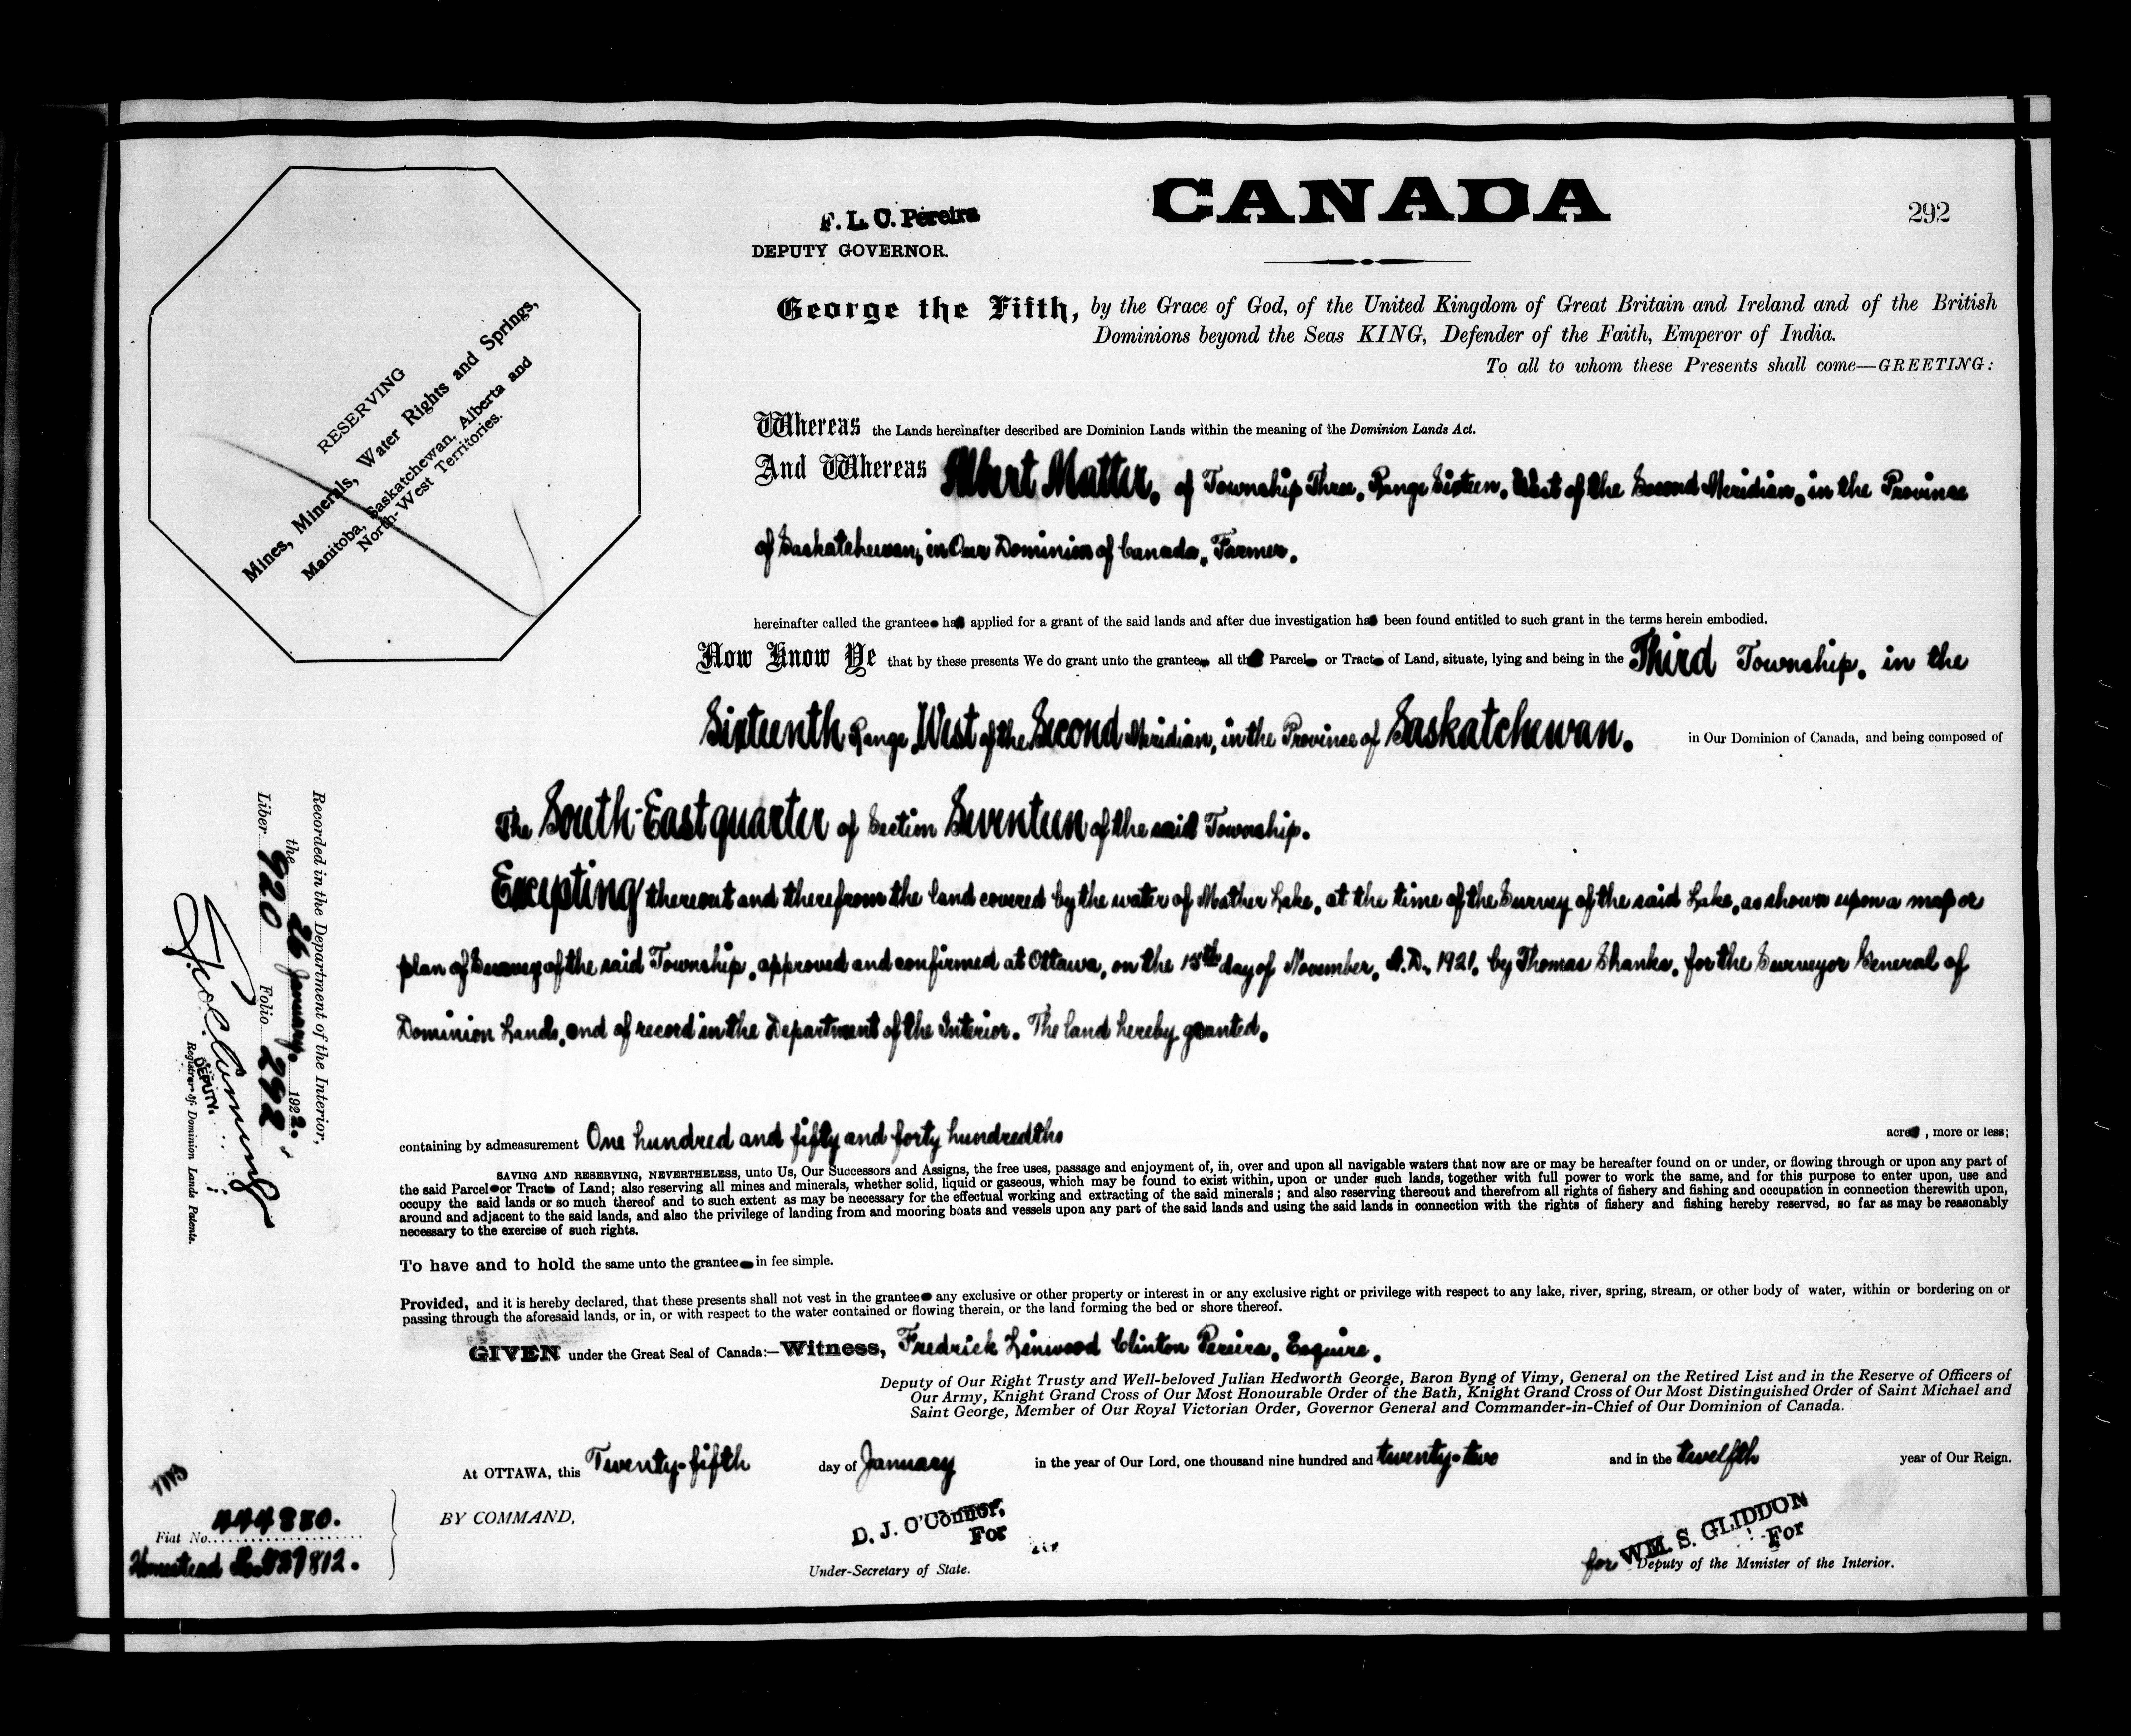 CANADA
292
F. L. C. Pereira
DEPUTY GOVERNOR.
George the Fifth, by the Grace of God, of the United Kingdom of Great Britain and Ireland and of the British
Dominions beyond the Seas KING, Defender of the Faith, Emperor of India.
To all to whom these Presents shall come—GREETING:
RESERVING
Mines, Minerals, Water Rights and Springs,
Manitoba, Saskatchewan, Alberta and
North-West Territories.
Whereas the Lands hereinafter described are Dominion Lands within the meaning of the Dominion Lands Act.
And Whereas Albert Matter, of Township Three, Range Sixteen, West of the Second Meridian, in the Province
of Saskatchewan, in Our Dominion of Canada, Farmer,
hereinafter called the grantee has applied for a grant of the said lands and after due investigation has been found entitled to such grant in the terms herein embodied.
Now Know Ye that by these presents We do grant unto the grantee all that Parcel or Tract of Land, situate, lying and being in the Third Township, in the
Sixteenth Range West of the Second Meridian, in the Province of Saskatchewan, in Our Dominion of Canada, and being composed of
The South-East quarter of Section Seventeen of the said Township.
Excepting thereout and therefrom the land covered by the water of Mather Lake, at the time of the Survey of the said Lake, as shown upon a map or
plan of Survey of the said Township, approved and confirmed at Ottawa, on the 15th day of November, A.D. 1921, by Thomas Shanks, for the Surveyor General of
Dominion Lands, and of record in the Department of the Interior. The land hereby granted,
containing by admeasurement One hundred and fifty and forty hundredths acres, more or less;
SAVING AND RESERVING, NEVERTHELESS, unto Us, Our Successors and Assigns, the free uses, passage and enjoyment of, in, over and upon all navigable waters that now are or may be hereafter found on or under, or flowing through or upon any part of
the said Parcel or Tract of Land; also reserving all mines and minerals, whether solid, liquid or gaseous, which may be found to exist within, upon or under such lands, together with full power to work the same, and for this purpose to enter upon, use and
occupy the said lands or so much thereof and to such extent as may be necessary for the effectual working and extracting of the said minerals; and also reserving thereout and therefrom all rights of fishery and fishing and occupation in connection therewith upon,
around and adjacent to the said lands, and also the privilege of landing from and mooring boats and vessels upon any part of the said lands and using the said lands in connection with the rights of fishery and fishing hereby reserved, so far as may be reasonably
necessary to the exercise of such rights.
To have and to hold the same unto the grantee in fee simple.
Provided, and it is hereby declared, that these presents shall not vest in the grantee any exclusive or other property or interest in or any exclusive right or privilege with respect to any lake, river, spring, stream, or other body of water, within or bordering on or
passing through the aforesaid lands, or in, or with respect to the water contained or flowing therein, or the land forming the bed or shore thereof.
GIVEN under the Great Seal of Canada:—Witness, Fredrick Linwood Clinton Pereira, Esquire,
Deputy of Our Right Trusty and Well-beloved Julian Hedworth George, Baron Byng of Vimy, General on the Retired List and in the Reserve of Officers of
Our Army, Knight Grand Cross of Our Most Honourable Order of the Bath, Knight Grand Cross of Our Most Distinguished Order of Saint Michael and
Saint George, Member of Our Royal Victorian Order, Governor General and Commander-in-Chief of Our Dominion of Canada.
At OTTAWA, this Twenty-fifth day of January in the year of Our Lord, one thousand nine hundred and twenty-two and in the twelfth year of Our Reign.
BY COMMAND,
D. J. O'Connor,
For
Under-Secretary of State.
WM. S. GLIDDON
For
for Deputy of the Minister of the Interior.
Recorded in the Department of the Interior,
the 26 January, 1922.
Liber 920 Folio 292
DEPUTY
Registrar of Dominion Lands Patents.
Fiat No. 444880.
Homestead